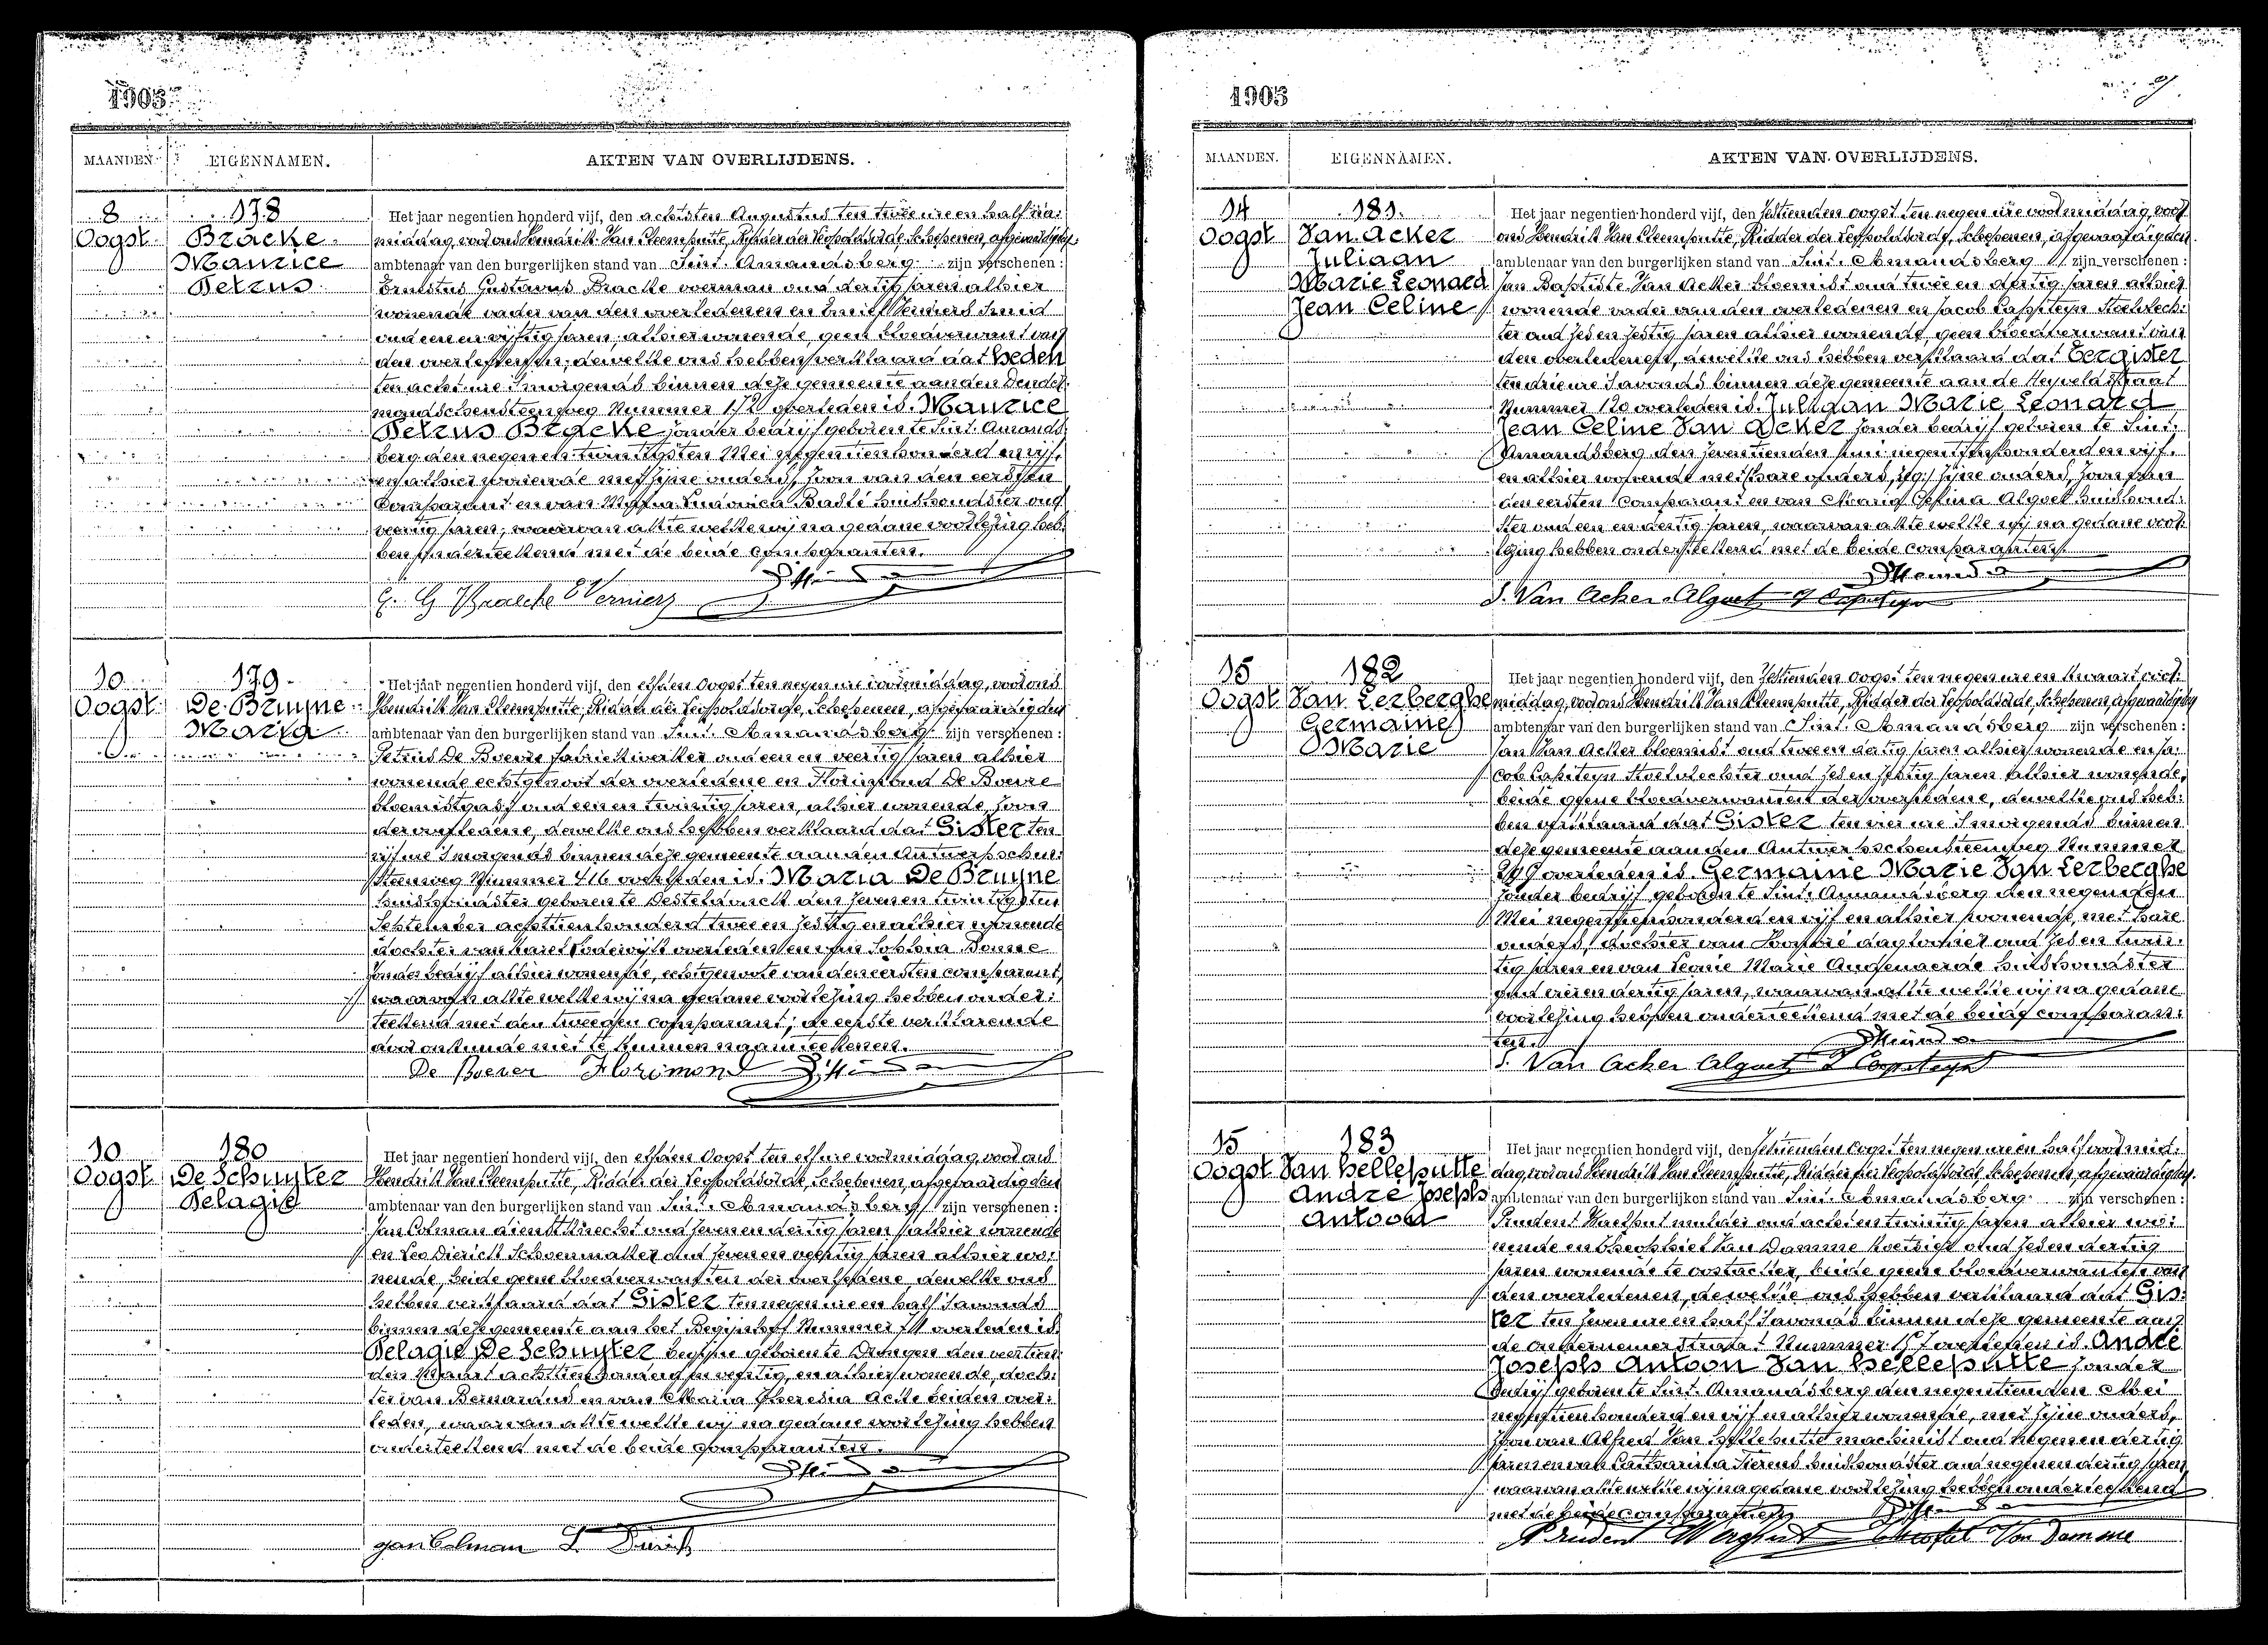 1905
MAANDEN.
EIGENNAMEN.
AKTEN VAN OVERLIJDENS.
8
Oogst
178
Bracke
Maurice
Petrus
Het jaar negentien honderd vijf, den achtsten Augustus ten twee ure en half na:
middag, voor ons Hendrik Van Cleemputte, Ridder der Leopoldsorde, Schepenen, afgevaardigden
ambtenaar van den burgerlijken stand van Sint-Amandsberg zijn verschenen:
Ernestus Gustavus Bracke voerman oud dertig jaren alhier
wonende vader van den overledenen en Emiel Verniers smid
oud een en vijftig jaren, alhier wonende, geen bloedverwant van
den overledenen, dewelke ons hebben verklaard dat heden
ten acht ure 's morgends binnen deze gemeente aan den Dender-
mondschensteenweg Nummer 172 overleden is. Maurice
Petrus Bracke zonder bedrijf geboren te Sint-Amands-
berg den negen en twintigsten Mei negentienhonderd en vijf,
en alhier wonende met zijne ouders, zoon van den eersten
Comparant en van Maria Ludovica Badté huishoudster oud
veertig jaren, waarvan akte welke wij na gedane voorlezing heb-
ben onderteekend met de beide comparanten.
E. G. Bracke E Verniers
10
Oogst
179
De Bruyne
Maria
Het jaar negentien honderd vijf, den elfden Oogst ten negen ure voormiddag, voor ons
Hendrik Van Cleemputte, Ridder der Leopoldsorde, Schepenen, afgevaardigden
ambtenaar van den burgerlijken stand van Sint-Amandsberg zijn verschenen:
Petrus De Boevre fabriekwerker oud een en veertig jaren alhier
wonende echtgenoot der overledene en Florimond De Boevre
bloemistgast oud een en twintig jaren, alhier wonende, zoon
der overledene, dewelke ons hebben verklaard dat Gister ten
vijf ure 's morgends binnen deze gemeente aan den Antwerpschen-
steenweg Nummer 416 overleden is. Maria De Bruyne
huishoudster geboren te Desteldonck den zeven en twintigsten
September achttienhonderd twee en zestig en alhier wonende
dochter van Karel Lodewijk overleden en van Sophia Bonne
zonder bedrijf alhier wonende, echtgenoote van den eersten comparant,
waarvan akte welke wij na gedane voorlezing hebben onder:
teekend met den tweeden comparant; de eerste verklarende
door onkunde niet te kunnen naamteekenen.
De Boever Florimond
10
Oogst
180
De Schuyter
Pelagie
Het jaar negentien honderd vijf, den elfden Oogst ten elf ure voormiddag, voor ons
Hendrik Van Cleemputte, Ridder der Leopoldsorde, Schepenen, afgevaardigden
ambtenaar van den burgerlijken stand van Sint-Amandsberg zijn verschenen:
Jan Colman dienstknecht oud zeven en dertig jaren alhier wonende
en Leo Dierick Schoenmaker oud zeven en veertig jaren alhier wo:
nende, beide geene bloedverwanten der overledene dewelke ons
hebben verklaard dat Gister ten negen ure en half 's avonds
binnen deze gemeente aan het Begijnhof Nummer overleden is.
Pelagie De Schuyter begijne geboren te Drongen den veertien-
den Maart achttienhonderd en veertig, en alhier wonende, doch-
ter van Bernardus en van Maria Theresia Acke beiden over:
leden, waarvan akte welke wij na gedane voorlezing hebben
onderteekend met de beide comparanten.
Jan Colman L. Dierick
1905
MAANDEN.
EIGENNAMEN.
AKTEN VAN OVERLIJDENS.
14
Oogst
181.
Van Acker
Juliaan
Marie Leonard
Jean Celine
Het jaar negentien honderd vijf, den zestienden oogst ten negen ure voormiddag, voor
ons Hendrik Van Cleemputte, Ridder der Leopoldsorde, Schepenen, afgevaardigden
ambtenaar van den burgerlijken stand van Sint-Amandsberg zijn verschenen:
Jan Baptiste Van Acker bloemist oud twee en dertig jaren alhier
wonende vader van den overledenen en Jacob Capiteyn Stoelvlech-
ter oud zes en zestig jaren alhier wonende, geen bloedverwant van
den overledenen, dewelke ons hebben verklaard dat Eergister
ten drie ure 's avonds binnen deze gemeente aan de Heyveldstraat
Nummer 120 overleden is. Juliaan Marie Leonard
Jean Celine Van Acker zonder bedrijf geboren te Sint-
Amandsberg den zeventienden Juni negentienhonderd en vijf,
en alhier wonende met hare ouders, zeg: zijne ouders, zoon van
den eersten Comparant en van Maria Celina Alguet huishoud-
ster oud een en dertig jaren, waarvan akte welke wij na gedane voor-
lezing hebben onderteekend met de beide comparanten.
J. Van Acker-Alguet J Capiteyn
15
Oogst
182
Van Lerberghe
Germaine
Marie
Het jaar negentien honderd vijf, den zestienden Oogst ten negen ure en kwaart voor-
middag, voor ons Hendrik Van Cleemputte, Ridder der Leopoldsorde, Schepenen, afgevaardigden
ambtenaar van den burgerlijken stand van Sint-Amandsberg zijn verschenen:
Jan Van Acker bloemist oud twee en dertig jaren alhier wonende en Ja-
cob Capiteyn Stoelvlechter oud zes en zestig jaren alhier wonende,
beide geene bloedverwanten der overledene, dewelke ons heb-
ben verklaard dat Gister ten vier ure 's morgends binnen
deze gemeente aan den Antwerpschensteenweg Nummer
overleden is. Germaine Marie Van Lerberghe
zonder bedrijf geboren te Sint-Amandsberg den negenden
Mei negentienhonderd en vijf en alhier wonende, met hare
ouders, dochter van daglooner oud zes en twin-
tig jaren en van Leonie Marie Audenaerde huishoudster
oud vier en dertig jaren, waarvan akte welke wij na gedane
voorlezing hebben onderteekend met de beide comparan-
ten.
J. Van Acker Alguet J Capiteyn
15
Oogst
183
Van helleputte
André Joseph
Antoon
Het jaar negentien honderd vijf, den zestienden Oogst ten negen ure en half voormid-
dag, voor ons Hendrik Van Cleemputte, Ridder der Leopoldsorde, Schepenen, afgevaardigden
ambtenaar van den burgerlijken stand van Sint-Amandsberg zijn verschenen:
Prudent mulder oud acht en twintig jaren alhier wo:
nende en Theophiel Van Damme Koetsier oud zes en dertig
jaren wonende te oostacker, beide geene bloedverwanten van
den overledenen, dewelke ons hebben verklaard dat Gis-
ter ten zeven ure en half 's avonds binnen deze gemeente aan
de ondernemerstraat Nummer overleden is. André
Joseph Antoon Van helleputte zonder
bedrijf geboren te Sint-Amandsberg den negentienden Mei
negentienhonderd en vijf en alhier wonende, met zijne ouders,
zoon van Alfred Van Helleputte machinist oud negen en dertig
jaren en van Catharina Sierens huishoudster oud negen en dertig jaren
waarvan akte welke wij na gedane voorlezing hebben onderteekend
met de beide comparanten
Prudent Van Damme